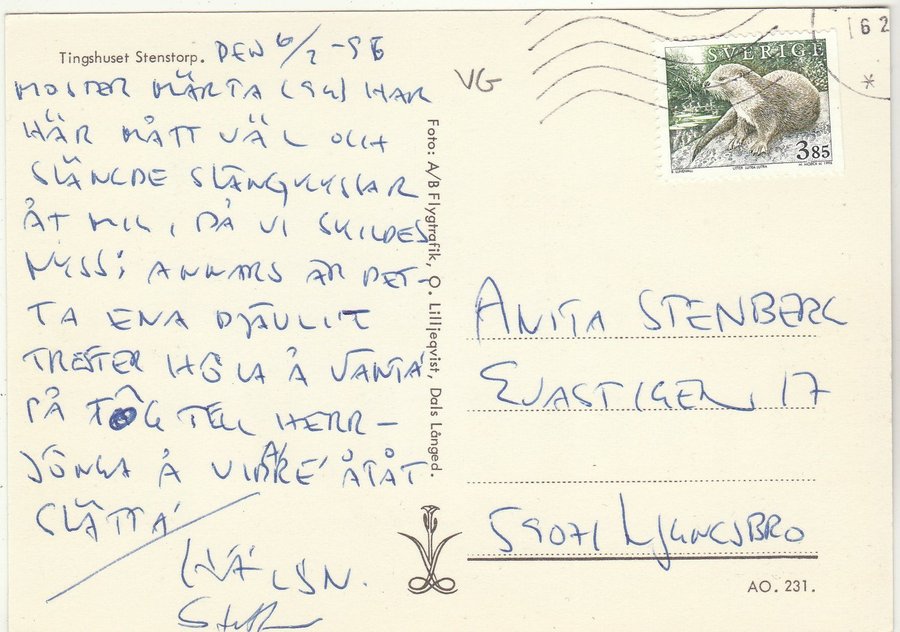 Tingshuset Stenstorp. DEN 6/2 -96
MOSTER MÄRTA (94) HAR
HÄR MÅTT VÄL OCH
SLÄNGDE SLÄNGKYSSAR
ÅT MIG, DÅ VI SKILDES
NYSS; ANNARS ÄR DET-
TA ENA DJÄVLIT
HÖLA Å VÄNTA
PÅ TÅG TELL HERR-
JÖNGA Å VIDARE ÅTÅT
SLÄTTA
HÄLSN.
VG
Foto: A/B Flygtrafik, O. Lilljeqvist, Dals Långed.
162
SVERIGE
3 85
UTTER LUTRA LUTRA
ANITA STENBERG
EVASTIGEN 17
59071 LJUNGSBRO
AO. 231.